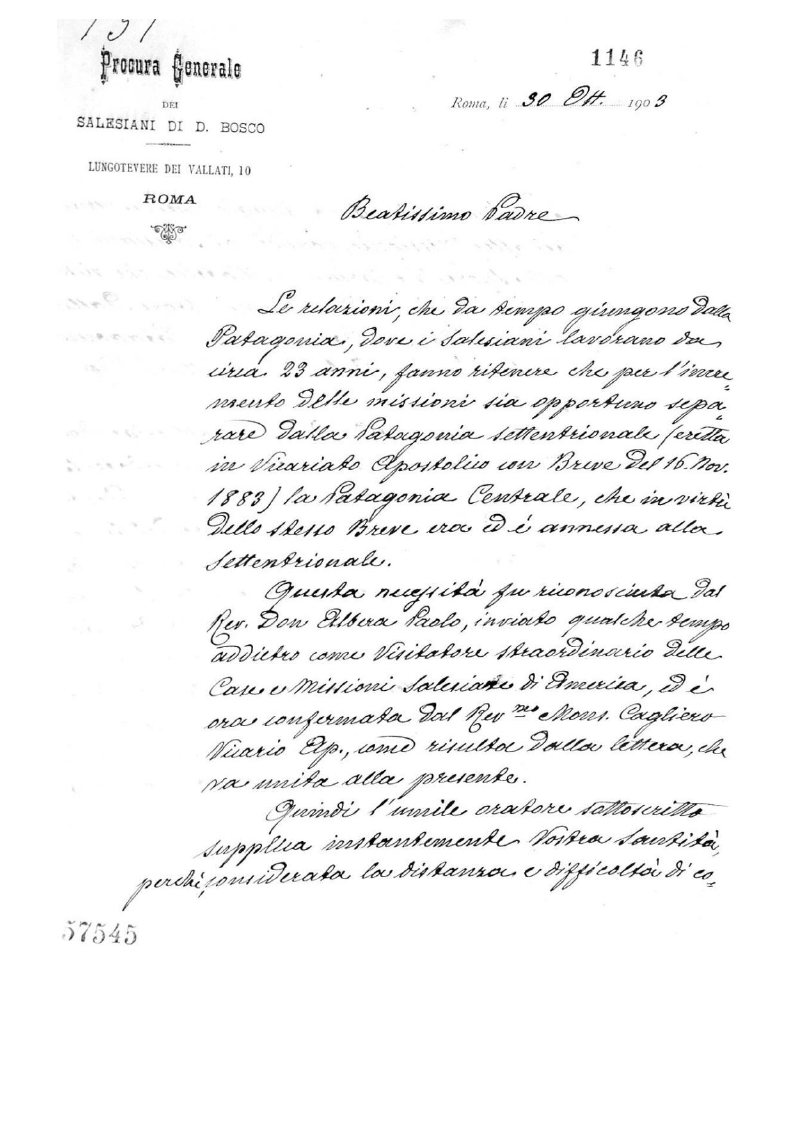 131
Procura Generale
DEI
SALESIANI DI D. BOSCO
LUNGOTEVERE DEI VALLATI, 10
ROMA
1146
Roma, li 30 Ott. 1903
Beatissimo Padre
Le relazioni, che da tempo giungono dalla
Patagonia, dove i Salesiani lavorano da
circa 23 anni, fanno ritenere che per l'incre=
mento delle missioni sia opportuno sepa=
rare dalla Patagonia settentrionale (eretta
in Vicariato Apostolico con Breve del 16. Nov.
1883) la Patagonia Centrale, che in virtù
dello stesso Breve era ed é annessa alla
settentrionale.
Questa necessità fu riconosciuta dal
Rev. Don Albera Paolo, inviato qualche tempo
addietro come Visitatore straordinario delle
Case e Missioni Salesiane di America, ed é
ora confermata dal Rev.mo Mons. Cagliero
Vicario Ap., come risulta dalla lettera, che
va unita alla presente.
Quindi l'umile oratore sottoscritto
supplica instantemente Vostra Santità,
perché, considerata la distanza e difficoltà di co=
57545